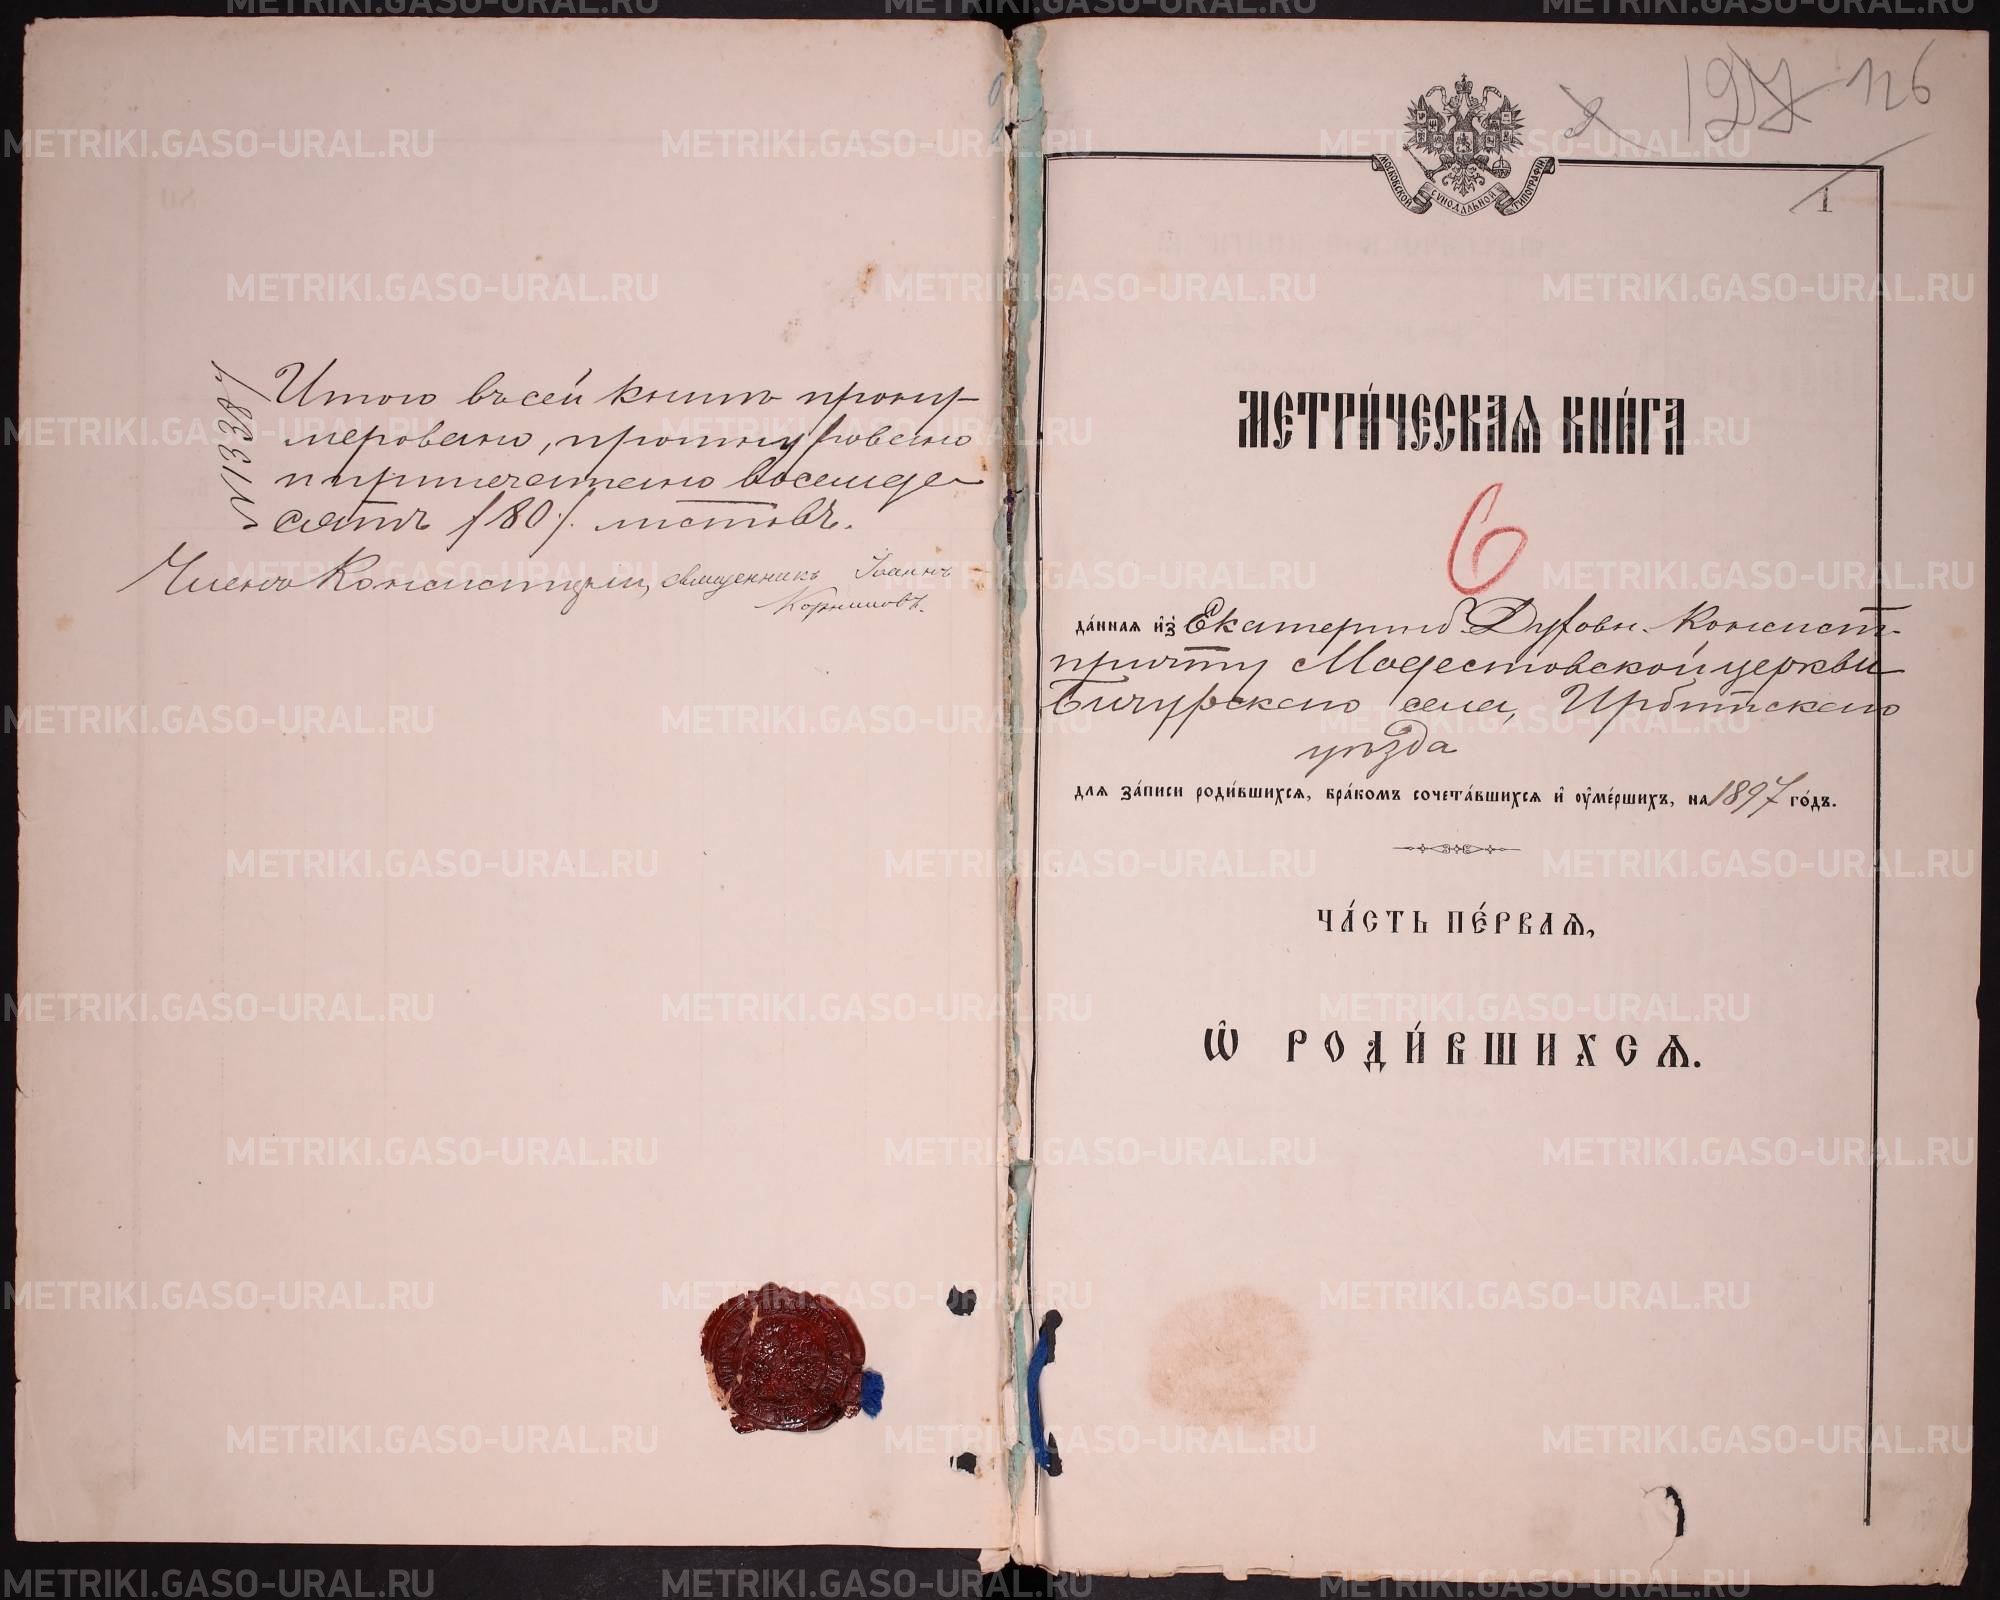 № 13387
Итого въ сей книгѣ прону-
меровано, прошнуровано
и припечатано восемьде-
сятъ /80/ листовъ.
Членъ Консисторіи, священникъ Іоаннъ
Корниловъ.
127 126
МОСКОВСКОЙ СѴНОДАЛЬНОЙ ТИПОГРАФІИ
1
МЕТРИ́ЧЕСКАѦ КНИ́ГА
6
да́нная и҆з̾ Екатеринб. Духовн. Консист.
причту Модестовской церкви
Бичурскаго села, Ирбитскаго
уѣзда
для за́писи роди́вшихсѧ, бра́комъ сочета́вшихсѧ и҆ ᲂу҆ме́ршихъ, на 1897 го́дъ.
ЧА́СТЬ ПЕ́РВАѦ,
Ѡ҆ РОДИ́ВШИХСѦ.
METRIKI.GASO-URAL.RU